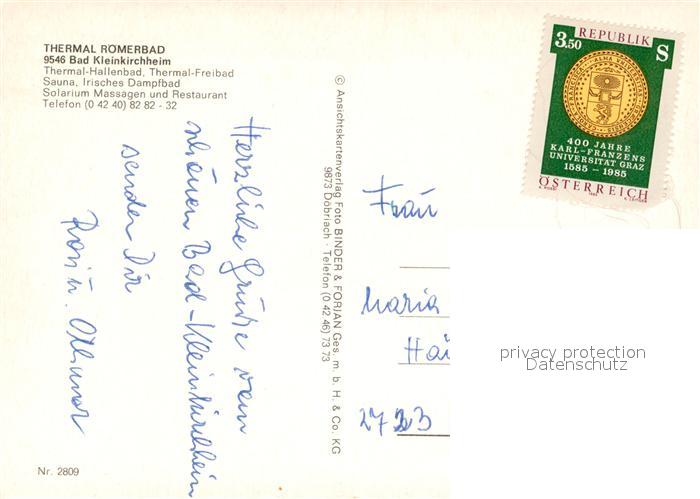 THERMAL RÖMERBAD
9546 Bad Kleinkirchheim
Thermal-Hallenbad, Thermal-Freibad
Sauna, Irisches Dampfbad
Solarium Massagen und Restaurant
Telefon (0 42 40) 82 82 - 32
Herzliche Grüße vom
schönen Bad-Kleinkirchheim
senden Dir
Rosi u. Othmar
Nr. 2809
© Ansichtskartenverlag Foto BINDER & FORJAN Ges. m. b. H. & Co. KG
9873 Döbriach · Telefon (0 42 46) 73 73
REPUBLIK
3.50 S
400 JAHRE
KARL-FRANZENS
UNIVERSITÄT GRAZ
1585 – 1985
ÖSTERREICH
Frau
Maria
Hai
2723
privacy protection
Datenschutz